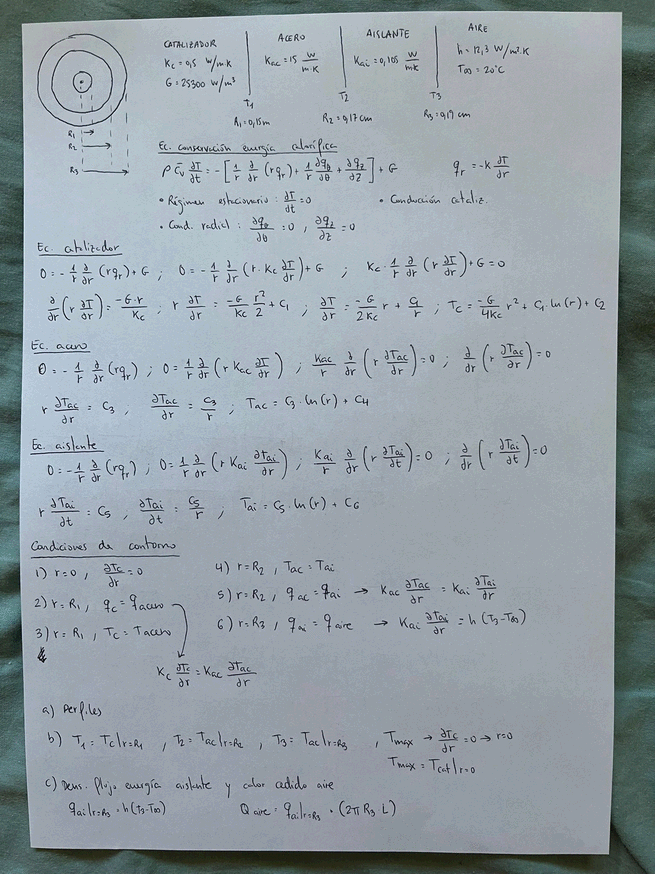 CATALIZADOR ACERO AISLANTE AIRE
Kc = 0,5 W/m·K Kac = 15 W/m·K Kai = 0,105 W/mK h = 12,3 W/m²·K
G = 25300 W/m³ T∞ = 20°C
T1 T2 T3
R1 = 0,15m R2 = 0,17 cm R3 = 0,19 cm
R1
R2
R3
Ec. conservación energía calorífica
ρ C̄v ∂T/∂t = -[1/r ∂/∂r (r qr) + 1/r ∂qθ/∂θ + ∂qz/∂z] + G qr = -k ∂T/∂r
• Régimen estacionario: ∂T/∂t = 0 • Conducción cataliz.
• Cond. radial: ∂qθ/∂θ = 0, ∂qz/∂z = 0
Ec. catalizador
0 = -1/r ∂/∂r (r qr) + G ; 0 = -1/r ∂/∂r (r · Kc ∂T/∂r) + G ; Kc · 1/r ∂/∂r (r ∂T/∂r) + G = 0
∂/∂r (r ∂T/∂r) = -G·r/Kc ; r ∂T/∂r = -G/Kc r²/2 + C1 ; ∂T/∂r = -G/2Kc r + C1/r ; Tc = -G/4Kc r² + C1 · ln(r) + C2
Ec. acero
0 = -1/r ∂/∂r (r qr) ; 0 = 1/r ∂/∂r (r Kac ∂T/∂r) ; Kac/r ∂/∂r (r ∂Tac/∂r) = 0 ; ∂/∂r (r ∂Tac/∂r) = 0
r ∂Tac/∂r = C3 , ∂Tac/∂r = C3/r ; Tac = C3 · ln(r) + C4
Ec. aislante
0 = -1/r ∂/∂r (r qr) ; 0 = 1/r ∂/∂r (r Kai ∂tai/∂r) ; Kai/r ∂/∂r (r ∂Tai/∂t) = 0 ; ∂/∂r (r ∂Tai/∂t) = 0
r ∂Tai/∂t = C5 , ∂Tai/∂t = C5/r ; Tai = C5 · ln(r) + C6
Condiciones de contorno
1) r = 0 , ∂Tc/∂r = 0
2) r = R1 , qc = qacero
3) r = R1 , Tc = Tacero
Kc ∂Tc/∂r = Kac ∂Tac/∂r
4) r = R2 , Tac = Tai
5) r = R2 , qac = qai → Kac ∂Tac/∂r = Kai ∂Tai/∂r
6) r = R3 , qai = qaire → Kai ∂Tai/∂r = h (T3-T∞)
a) Perfiles
b) T1 = Tc|r=R1 , T2 = Tac|r=R2 , T3 = Tac|r=R3 , Tmax → ∂Tc/∂r = 0 → r=0
Tmax = Tcat|r=0
c) Dens. flujo energía aislante y calor cedido aire
qai|r=R3 = h (T3-T∞) Qaire = qai|r=R3 · (2π R3 L)